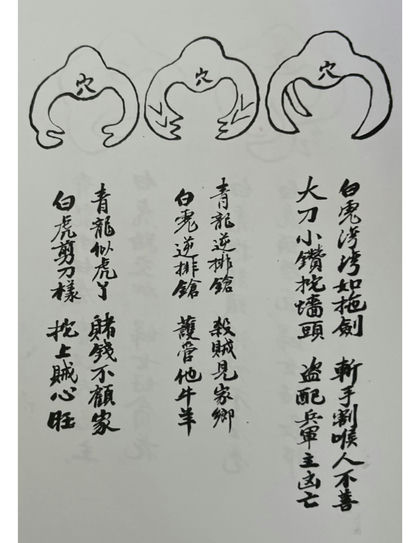 穴
穴
穴
白虎湾湾如拖劍 斬手割喉人不善
大刀小鑽挖墻頭 盗配兵軍主凶亡
青龍逆排鎗 殺賊見家鄉
白虎逆排鎗 護管他牛羊
青龍似虎丫 賭錢不顧家
白虎剪刀樣 挖上賊心旺